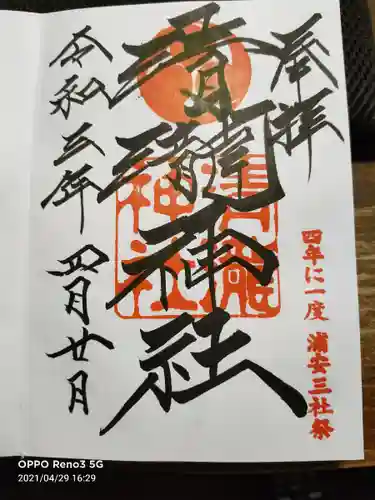 奉拝
清瀧神社
清瀧神社
四年に一度 浦安三社祭
令和三年 四月廿日
OPPO Reno3 5G
2021/04/29 16:29